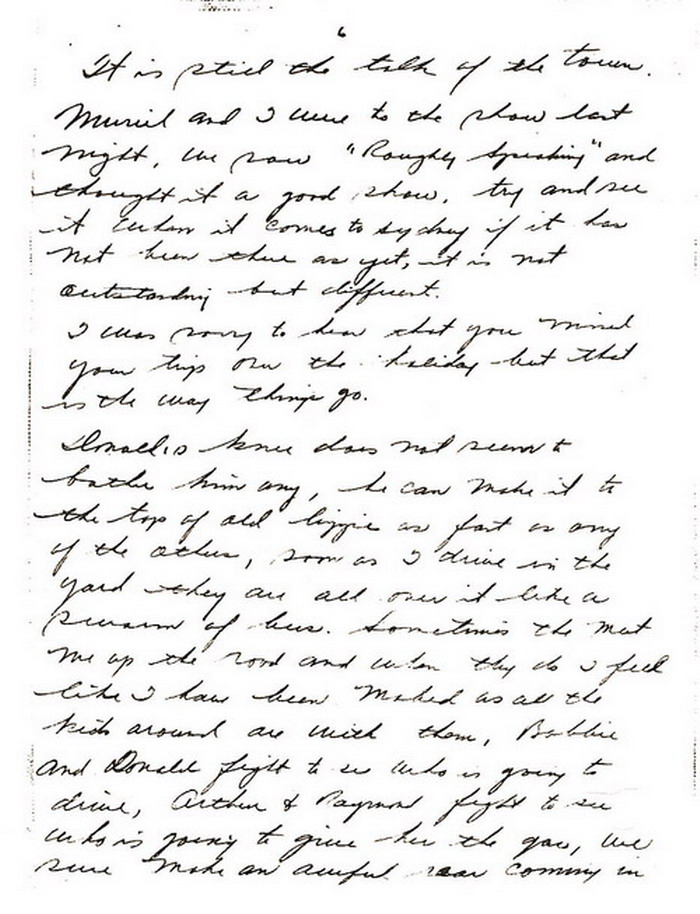 6
It is still the talk of the town.
Muriel and I were to the show last
night, we saw "Roughly Speaking" and
thought it a good show, try and see
it when it comes to sydney if it has
not been there as yet, it is not
outstanding but different.
I was sorry to hear that you missed
your trip over the holiday but that
is the way things go.
Donald,s knee does not seem to
bother him any, he can make it to
the top of old lizzie as fast as any
of the others, soon as I drive in the
yard they are all over it like a
swarm of bees. Sometimes the meet
me up the road and when they do I feel
like I have been as all the
kids around are with them, Bobbie
and Donald fight to see who is going to
drive, Arthur & Raymond fight to see
who is going to give her the gas, we
sure make an awful roar coming in